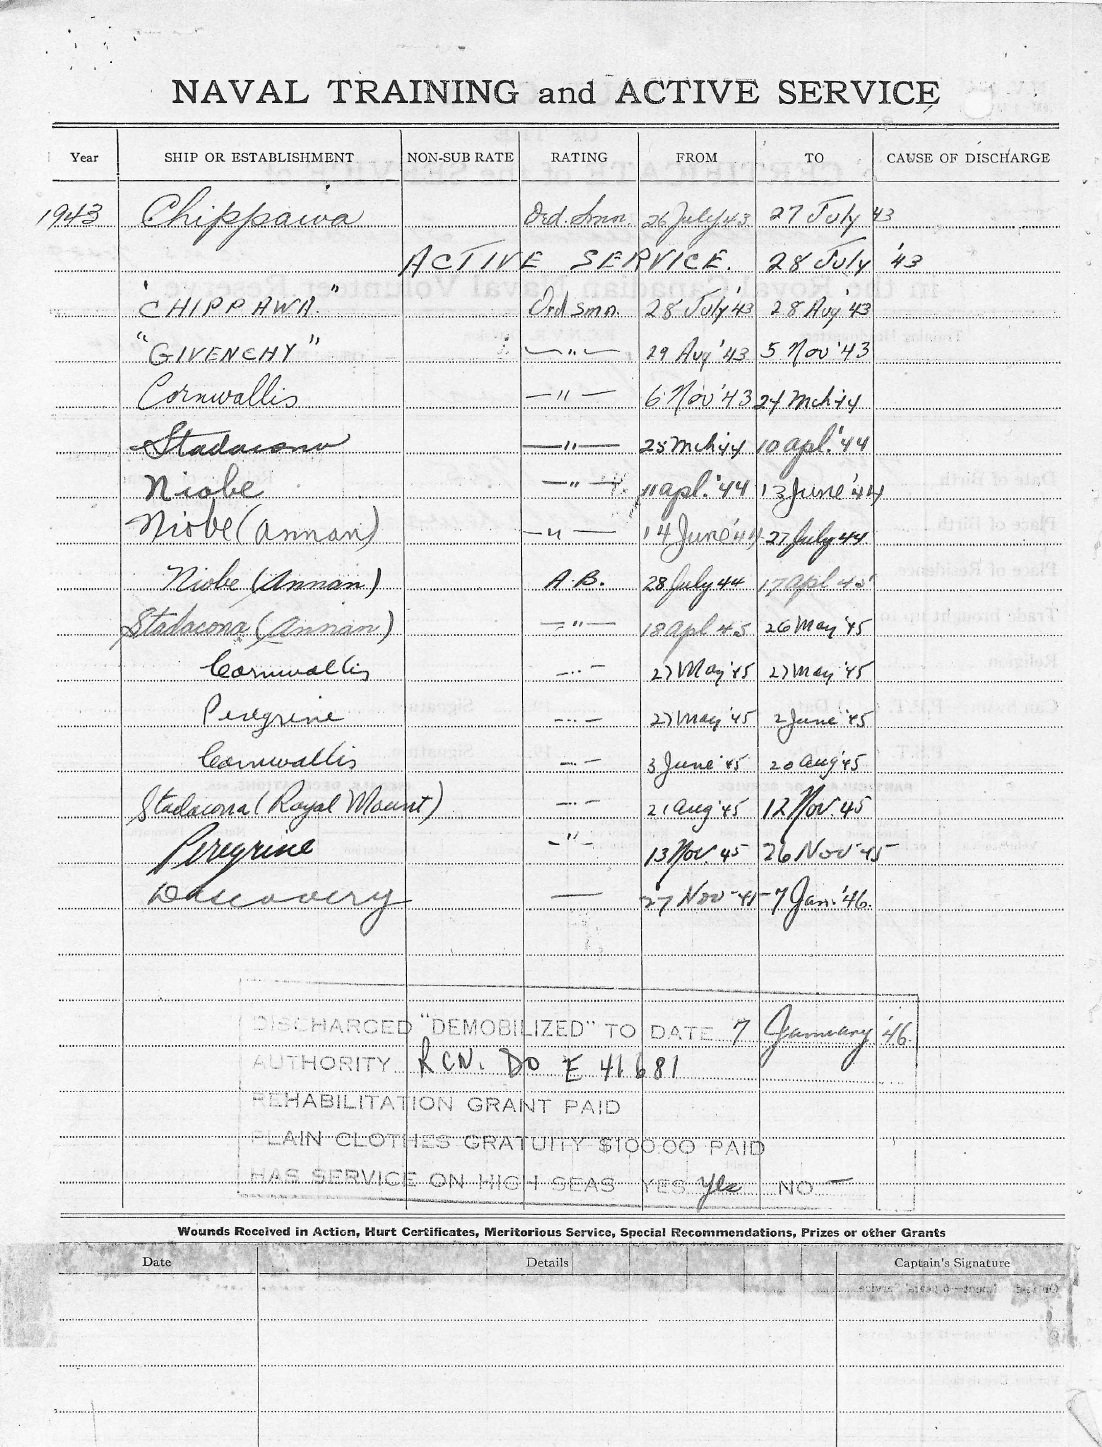 NAVAL TRAINING and ACTIVE SERVICE
Year SHIP OR ESTABLISHMENT NON-SUB RATE RATING FROM TO CAUSE OF DISCHARGE
1943 Chippawa Ord. Smn. 26 July 43 27 July 43
ACTIVE SERVICE. 28 July '43
"CHIPPAWA." Ord smn. 28 July '43 28 Aug '43
"GIVENCHY" —"— 29 Aug '43 5 Nov '43
Cornwallis —"— 6 Nov '43 24 Mch 44
Stadacona —"— 25 Mch 44 10 apl. '44
Niobe —"— 11 apl. '44 13 June '44
Niobe (Annan) —"— 14 June '44 27 July 44
Niobe (Annan) A.B. 28 July 44 17 apl 45
Stadacona (Annan) —"— 18 apl 45 26 May '45
Cornwallis —"— 27 May '45 27 May '45
Peregrine —"— 27 May '45 2 June '45
Cornwallis —"— 3 June '45 20 Aug '45
Stadacona (Royal Mount) —"— 21 Aug '45 12 Nov. 45
Peregrine —"— 13 Nov. 45 26 Nov 45
Discovery — 27 Nov 45 7 Jan. '46.
DISCHARGED "DEMOBILIZED" TO DATE 7 January '46.
AUTHORITY RCN. DO E 41681
REHABILITATION GRANT PAID
PLAIN CLOTHES GRATUITY $100.00 PAID
HAS SERVICE ON HIGH SEAS YES Yes NO —
Wounds Received in Action, Hurt Certificates, Meritorious Service, Special Recommendations, Prizes or other Grants
Date Details Captain's Signature